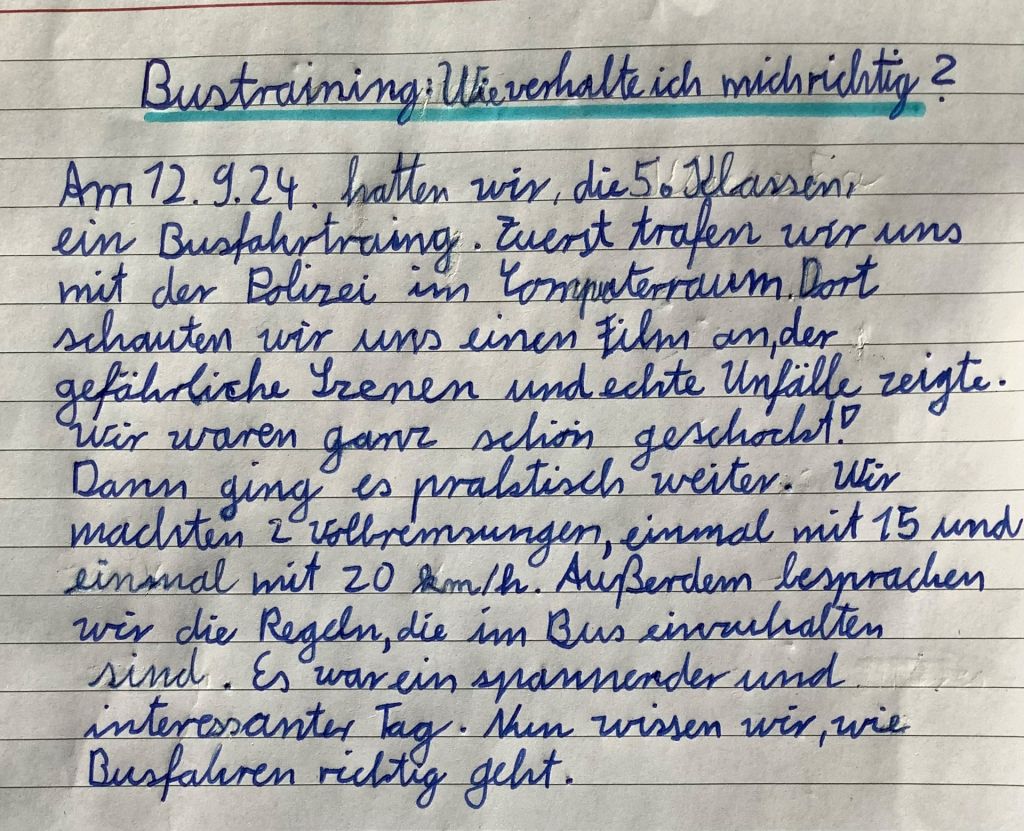 Bustraining: Wie verhalte ich mich richtig?
Am 12.9.24. hatten wir, die 5. Klassen,
ein Busfahrtraing. Zuerst trafen wir uns
mit der Polizei im Computerraum. Dort
schauten wir uns einen Film an, der
gefährliche Szenen und echte Unfälle zeigte.
Wir waren ganz schön geschockt!
Dann ging es praktisch weiter. Wir
machten 2 Vollbremsungen, einmal mit 15 und
einmal mit 20 km/h. Außerdem besprachen
wir die Regeln, die im Bus einzuhalten
sind. Es war ein spannender und
interessanter Tag. Nun wissen wir, wie
Busfahren richtig geht.